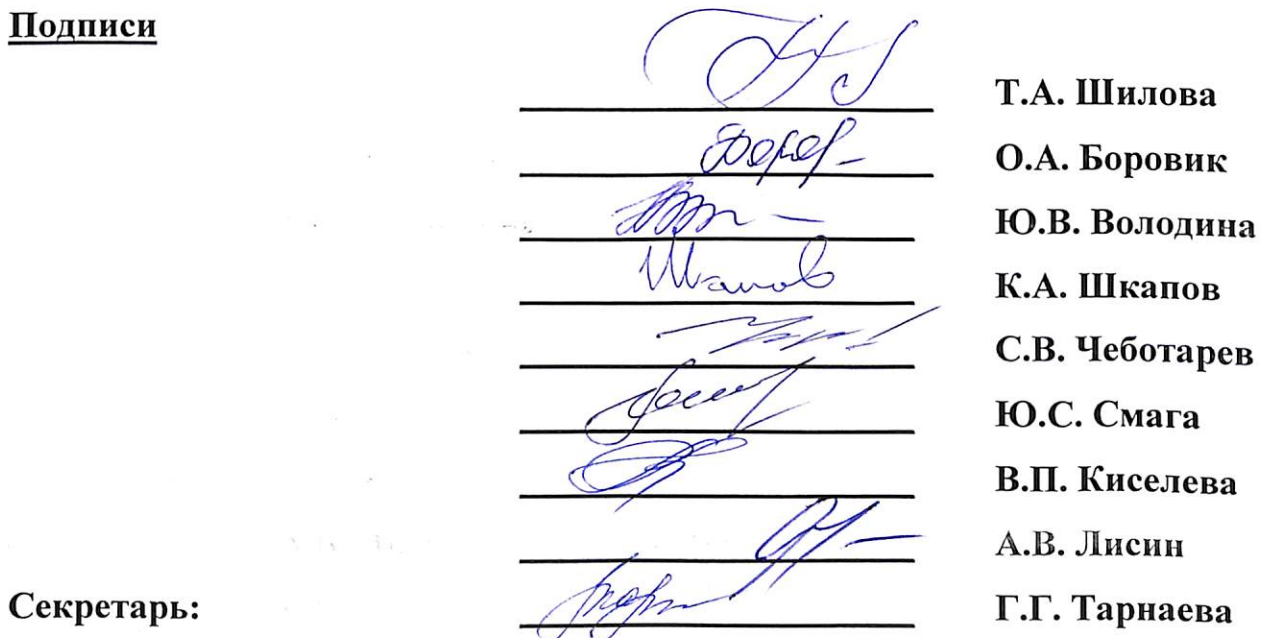 Подписи
Т.А. Шилова
О.А. Боровик
Ю.В. Володина
Шкапов К.А. Шкапов
С.В. Чеботарев
Ю.С. Смага
В.П. Киселева
А.В. Лисин
Секретарь: Г.Г. Тарнаева